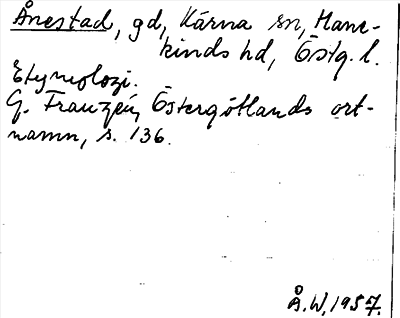 Ånestad, gd, Kärna sn, Hane-
kinds hd, Östg. l.
Etymologi.
G. Franzén, Östergötlands ort-
namn, s. 136.
Å.W. 1957.